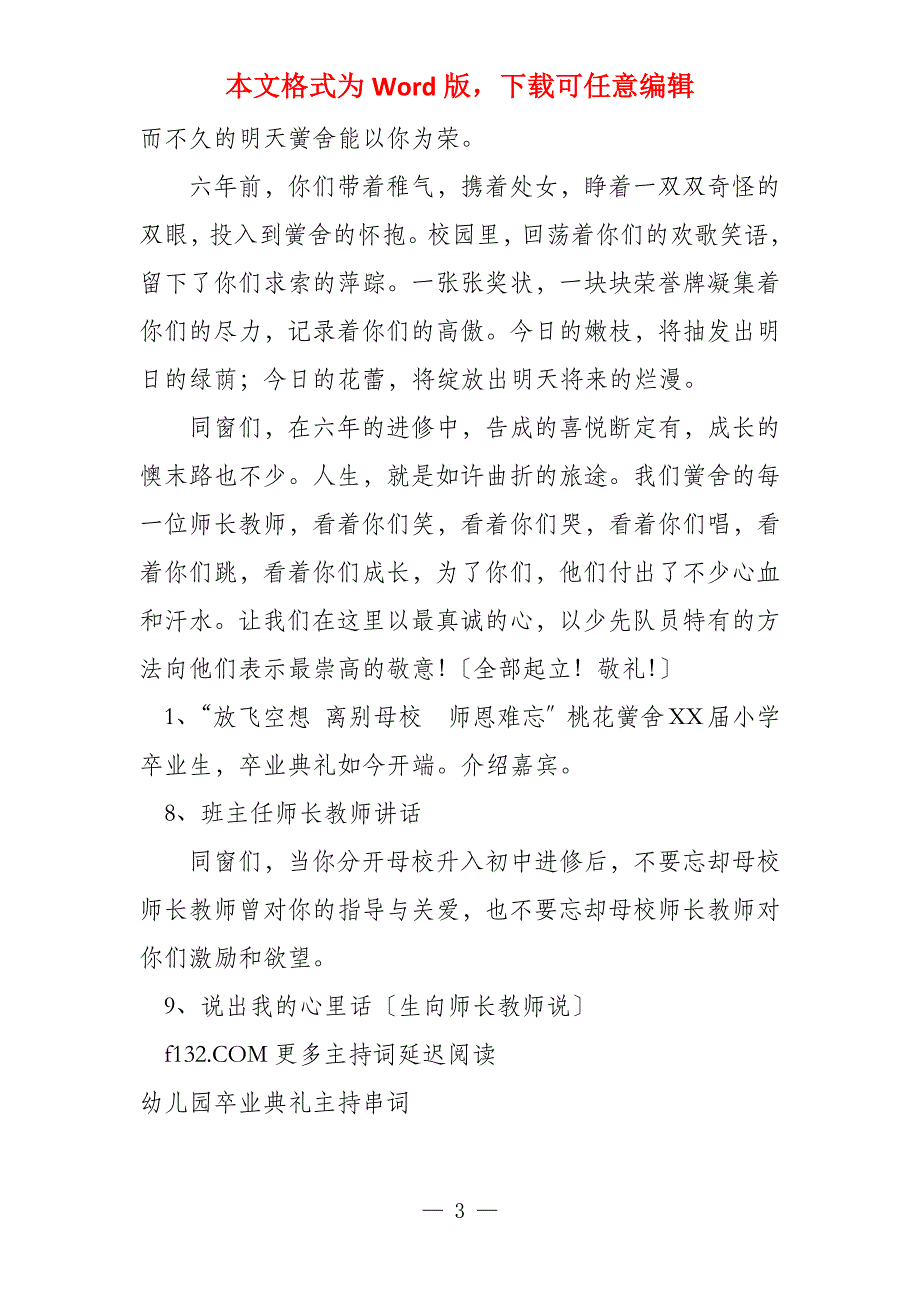 本文格式为 Word 版，下载可任意编辑
而不久的明天黉舍能以你为荣。
六年前，你们带着稚气，携着处女，睁着一双双奇怪的
双眼，投入到黉舍的怀抱。校园里，回荡着你们的欢歌笑语，
留下了你们求索的萍踪。一张张奖状，一块块荣誉牌凝集着
你们的尽力，记录着你们的高傲。今日的嫩枝，将抽发出明
日的绿荫；今日的花蕾，将绽放出明天将来的烂漫。
同窗们，在六年的进修中，告成的喜悦断定有，成长的
懊末路也不少。人生，就是如许曲折的旅途。我们黉舍的每
一位师长教师，看着你们笑，看着你们哭，看着你们唱，看
着你们跳，看着你们成长，为了你们，他们付出了不少心血
和汗水。让我们在这里以最真诚的心，以少先队员特有的方
法向他们表示最崇高的敬意！〔全部起立！敬礼！〕
1、“放飞空想 离别母校　师恩难忘〞桃花黉舍 XX 届小学
卒业生，卒业典礼如今开端。介绍嘉宾。
8、班主任师长教师讲话
同窗们，当你分开母校升入初中进修后，不要忘却母校
师长教师曾对你的指导与关爱，也不要忘却母校师长教师对
你们激励和欲望。
9、说出我的心里话〔生向师长教师说〕
f132.COM 更多主持词延迟阅读
幼儿园卒业典礼主持串词
— 3 —